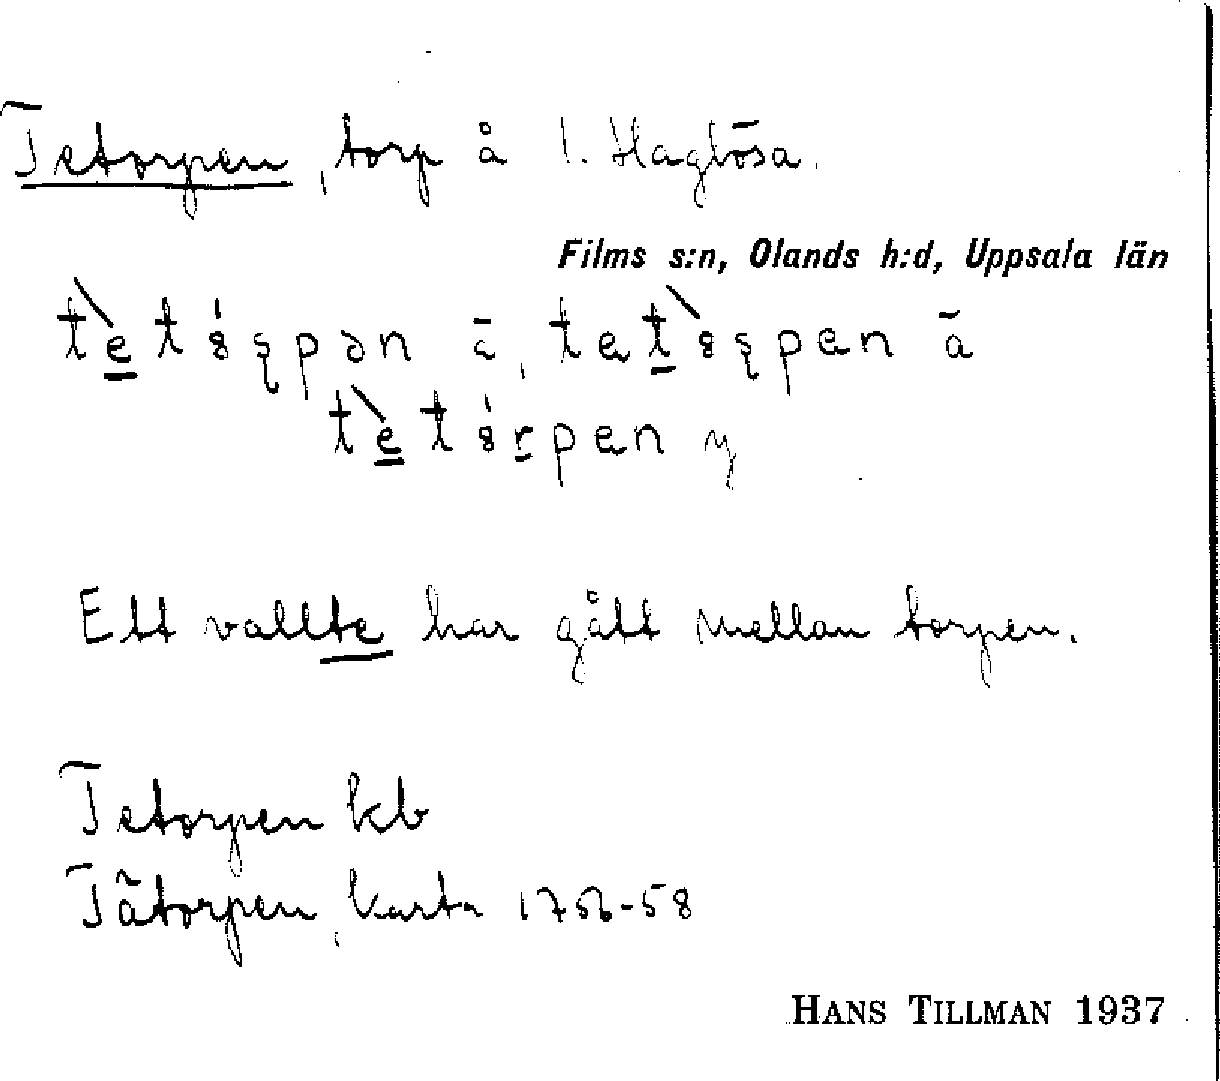 Tetorpen, torp å l. Haglösa.
Films s:n, Olands h:d, Uppsala län
Ett vallte har gått mellan torpen.
Tetorpen kb
Tätorpen, karta 1756-58
HANS TILLMAN 1937